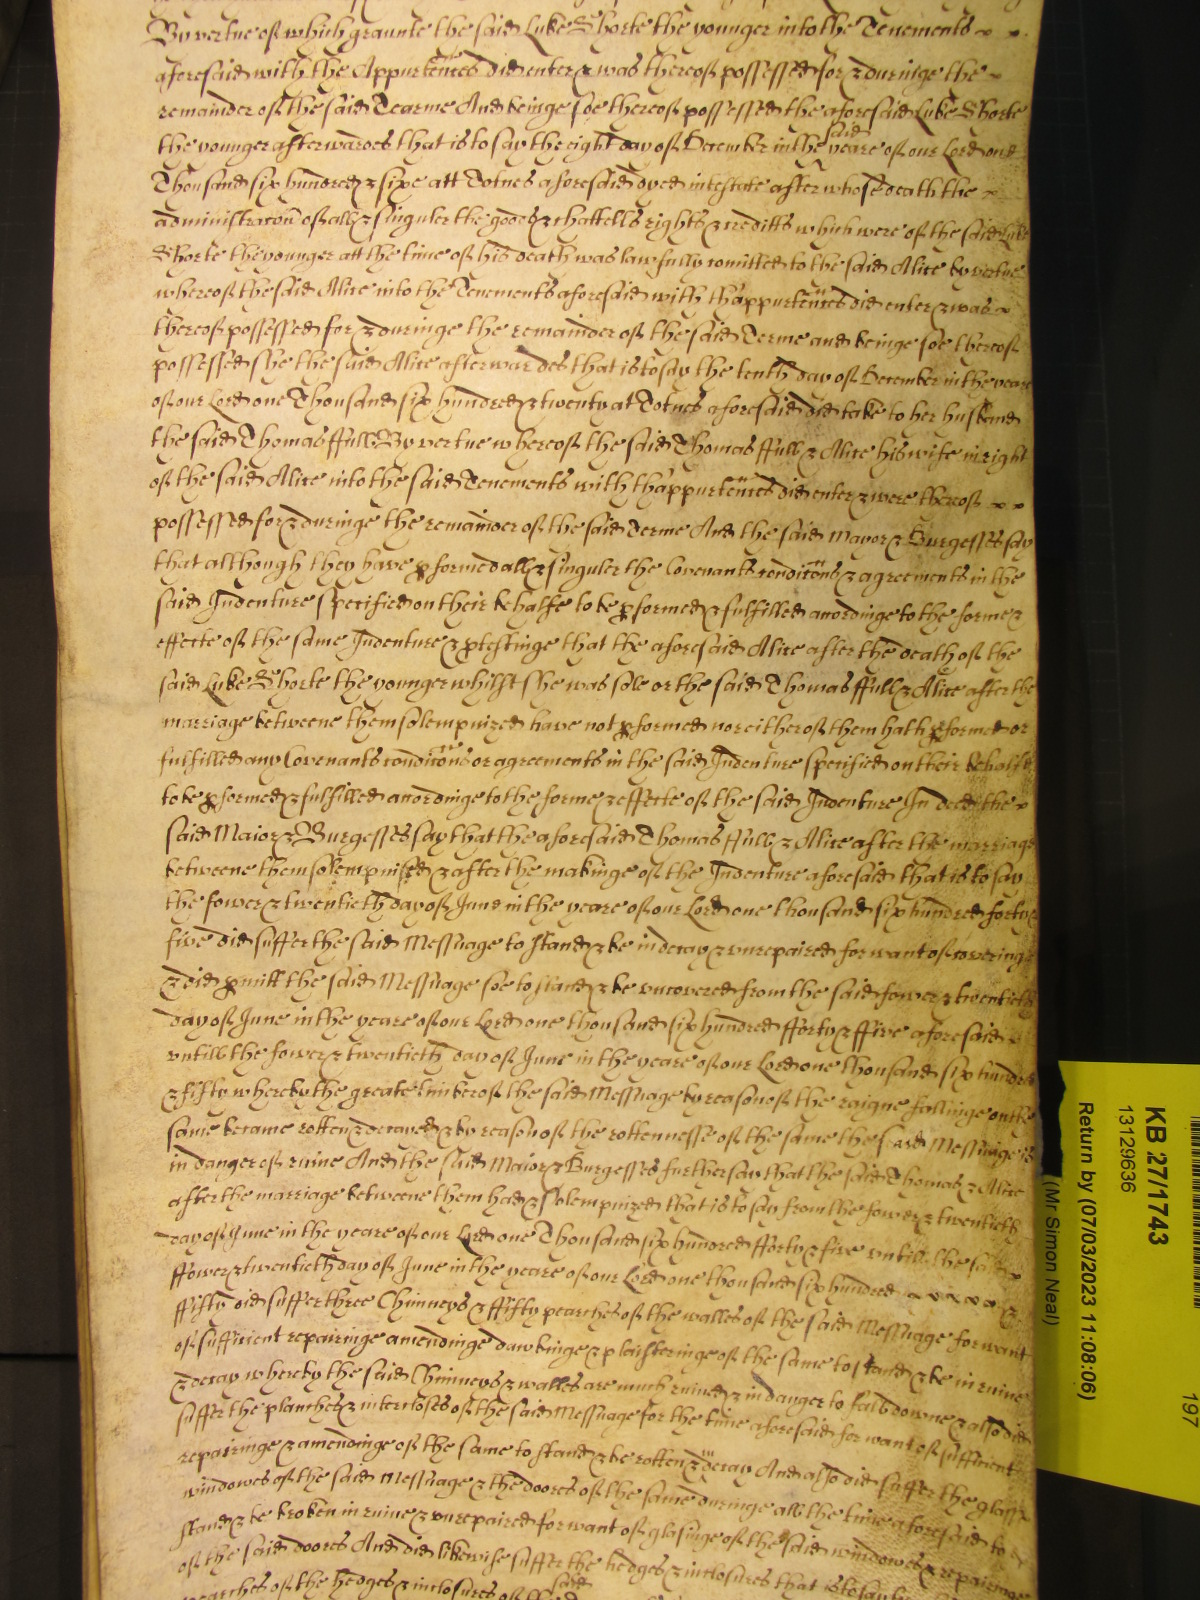 By vertue of which graunte the said Luke Shorte the younger into the Tenements
aforesaid with the Appurtenñces did enter & was thereof possessed for & duringe the
remainder of the said Tearme And beinge soe thereof possessed the aforesaid Luke Shorte
the younger afterwardes that is to say the eight day of December in the said yeare of our Lord one
Thousand six hundred & sixe att Totnes aforesaid dyed intestate after whose death the
administracoñ of all & singuler the goods & chattells rights & creditts which were of the said Luke
Shorte the younger att the time of his death was lawfully comitted to the said Alice by vertue
whereof the said Alice into the Tenements aforesaid with thappurtenñces did enter & was
thereof possessed for & duringe the remainder of the said Terme and beinge soe thereof
possessed she the said Alice afterwardes that is to say the tenth day of December in the yeare
of our Lord one Thousand six hundred & twenty at Totnes aforesaid did take to her husband
the said Thomas ffull By vertue whereof the said Thomas ffull & Alice his wife in right
of the said Alice into the said Tenements with thappurtenñces did enter & were thereof
possessed for & duringe the remainder of the said Terme And the said Mayor & Burgesses say
that although they have pformed all & singuler the Covenants condicõns & agreements in the
said Indenture specified on their behalfe to be pformed & fulfilled accordinge to the forme &
effecte of the same Indenture & ptestinge that the aforesaid Alice after the death of the
said Luke Shorte the younger whilst she was sole or the said Thomas ffull & Alice after the
marriage betweene them solempnized have not pformed nor either of them hath pformed or
fulfilled any Covenants condicõns or agreements in the said Indenture specified on their behalfe
to be pformed & fulfilled accordinge to the forme & effecte of the said Indenture In deed the
said Maior & Burgesses say that the aforesaid Thomas ffull & Alice after the marriage
betweene them solempnised & after the makinge of the Indenture aforesaid that is to say
the fower & twentieth day of June in the yeare of our Lord one thousand six hundred forty &
five did suffer the said Messuage to stand & be in decay & unrepaired for want of coveringe
& did pmitt the said Messuage soe to stand & be uncovered from the said fower & twentieth
day of June in the yeare of our Lord one thousand six hundred fforty & ffive aforesaid
untill the fower & twentieth day of June in the yeare of our Lord one thousand six hundred
& fifty whereby the greate timber of the said Messuage by reason of the raigne fallinge on the
same became rotten & decayed & by reason of the rottennesse of the same the said Messuage is
in danger of ruine And the said Maior & Burgesses further say that the said Thomas & Alice
after the marriage betweene them had & solempnized that is to say from the fower & twentieth
day of June in the yeare of our Lord one Thousand six hundred fforty & five untill the said
ffower & twentieth day of June in the yeare of our Lord one thousand six hundred &
ffifty did suffer three Chimneys & ffifty pearches of the walles of the said Messuage for want
of sufficient repairinge amendinge dawbinge & plaisteringe of the same to stand & be in ruine
& decay whereby the said Chimneys & walles are much ruined & in danger to fall downe & also did
suffer the planches & intercloses of the said Messuage for the time aforesaid for want of sufficient
repairinge & amendinge of the same to stand & be rotten & in decay And also did suffer the glasse
windowes of the said Messuage & the doores of the same duringe all the time aforesaid to
stand & be broken in ruine & unrepaired for want of glasinge of the said windowes & repairinge
of the said doores And did likewise suffer the hedges & inclosures that is to say
pearches of the hedges & inclosures of said
KB 27/1743
13129636
Return by (07/03/2023 11:08:06)
(Mr Simon Neal)
197